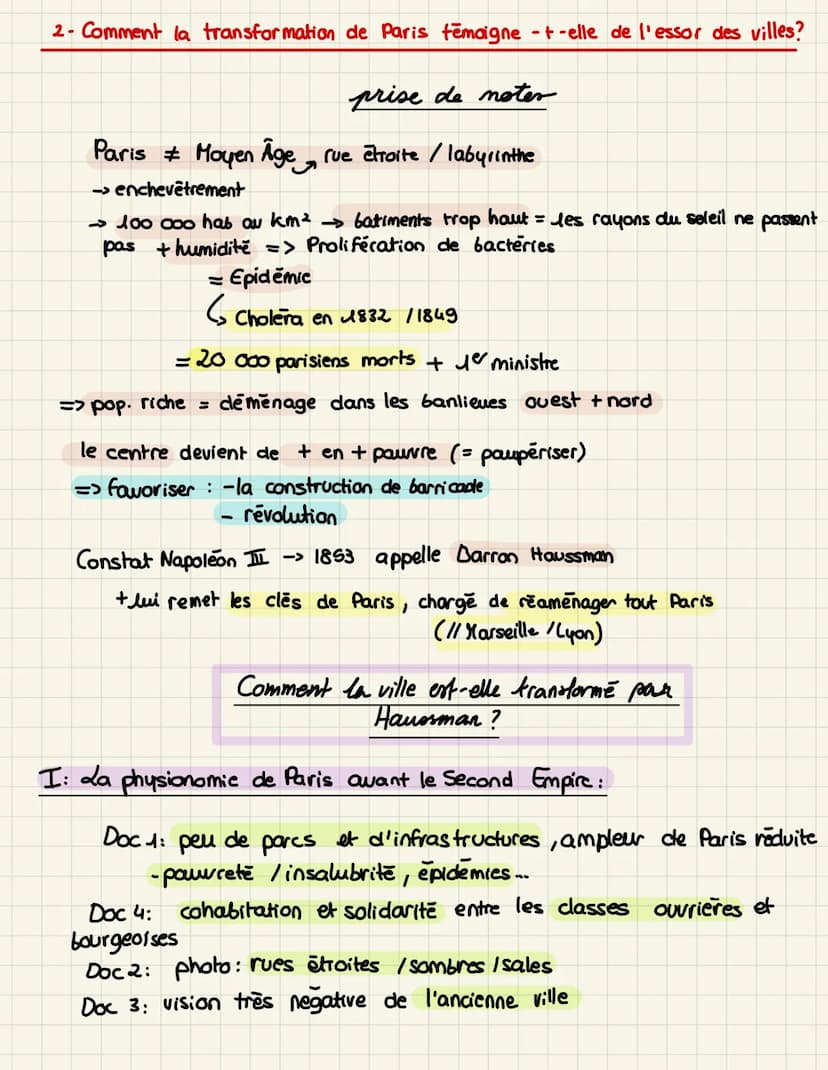 2- Comment la transformation de Paris témoigne -t-elle de l'essor des villes?
prise de notes
Paris ≠ Moyen Âge → rue étroite / labyrinthe
-> enchevêtrement
-> 100 000 hab au km² -> batiments trop haut = les rayons du soleil ne passent
pas + humidité => Prolifération de bactéries
= Epidémie
↳ Choléra en 1832 / 1849
= 20 000 parisiens morts + 1er ministre
=> pop. riche = déménage dans les banlieues ouest + nord
le centre devient de + en + pauvre (= paupériser)
=> favoriser : -la construction de barricade
- révolution
Constat Napoléon III -> 1853 appelle Barron Haussman
+ lui remet les clés de Paris, chargé de réaménager tout Paris
(// Marseille / Lyon)
Comment la ville est-elle transformé par
Haussman ?
I: La physionomie de Paris avant le Second Empire :
Doc 1: peu de parcs et d'infrastructures, ampleur de Paris réduite
- pauvreté / insalubrité, épidémies...
Doc 4: cohabitation et solidarité entre les classes ouvrières et
bourgeoises
Doc 2: photo : rues étroites / sombres / sales
Doc 3: vision très négative de l'ancienne ville